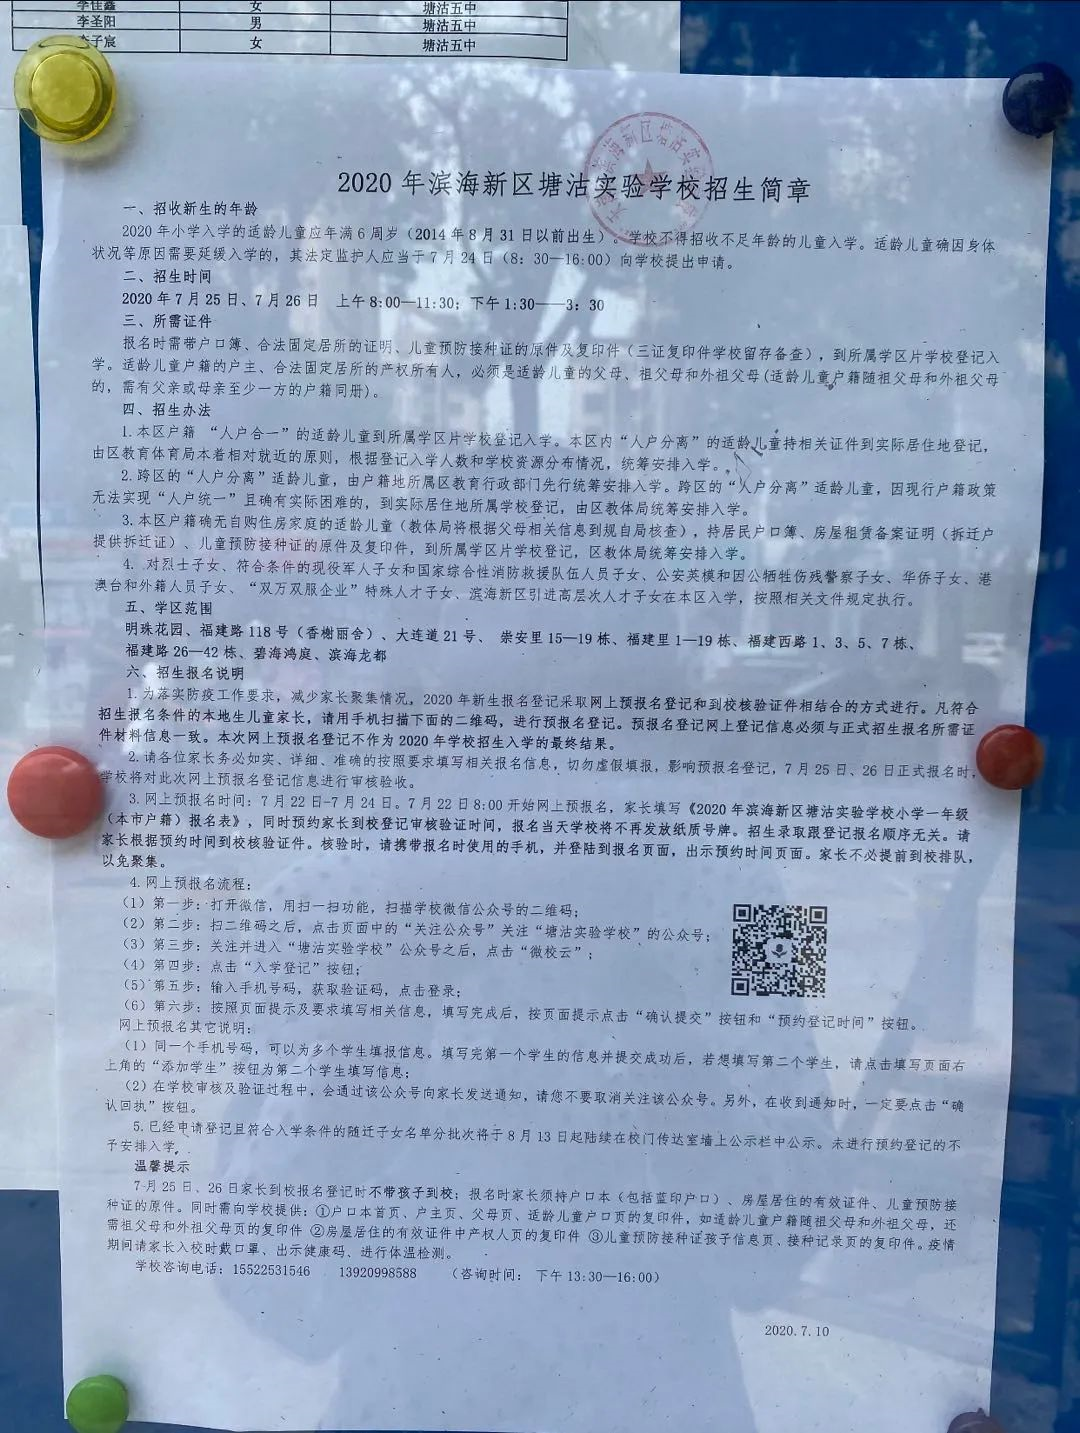 李佳鑫 女 塘沽五中
李圣阳 男 塘沽五中
李子宸 女 塘沽五中
2020年滨海新区塘沽实验学校招生简章
一、招收新生的年龄
2020年小学入学的适龄儿童应年满6周岁（2014年8月31日以前出生）。学校不得招收不足年龄的儿童入学。适龄儿童确因身体
状况等原因需要延缓入学的，其法定监护人应当于7月24日（8：30—16:00）向学校提出申请。
二、招生时间
2020年7月25日、7月26日 上午8:00—11:30；下午1:30——3：30
三、所需证件
报名时需带户口簿、合法固定居所的证明、儿童预防接种证的原件及复印件（三证复印件学校留存备查），到所属学区片学校登记入
学。适龄儿童户籍的户主、合法固定居所的产权所有人，必须是适龄儿童的父母、祖父母和外祖父母(适龄儿童户籍随祖父母和外祖父母
的，需有父亲或母亲至少一方的户籍同册)。
四、招生办法
1.本区户籍 “人户合一”的适龄儿童到所属学区片学校登记入学。本区内“人户分离”的适龄儿童持相关证件到实际居住地登记，
由区教育体育局本着相对就近的原则，根据登记入学人数和学校资源分布情况，统筹安排入学。
2.跨区的“人户分离”适龄儿童，由户籍地所属区教育行政部门先行统筹安排入学。跨区的“人户分离”适龄儿童，因现行户籍政策
无法实现“人户统一”且确有实际困难的，到实际居住地所属学校登记，由区教体局统筹安排入学。
3.本区户籍确无自购住房家庭的适龄儿童（教体局将根据父母相关信息到规自局核查），持居民户口簿、房屋租赁备案证明（拆迁户
提供拆迁证）、儿童预防接种证的原件及复印件，到所属学区片学校登记，区教体局统筹安排入学。
4. 对烈士子女、符合条件的现役军人子女和国家综合性消防救援队伍人员子女、公安英模和因公牺牲伤残警察子女、华侨子女、港
澳台和外籍人员子女、“双万双服企业”特殊人才子女、滨海新区引进高层次人才子女在本区入学，按照相关文件规定执行。
五、学区范围
明珠花园、福建路118号（香榭丽舍）、大连道21号、 崇安里15—19栋、福建里1—19栋、福建西路1、3、5、7栋、
福建路26—42栋、碧海鸿庭、滨海龙都
六、招生报名说明
1.为落实防疫工作要求，减少家长聚集情况，2020年新生报名登记采取网上预报名登记和到校核验证件相结合的方式进行。凡符合
招生报名条件的本地生儿童家长，请用手机扫描下面的二维码，进行预报名登记。预报名登记网上登记信息必须与正式招生报名所需证
件材料信息一致。本次网上预报名登记不作为2020年学校招生入学的最终结果。
2.请各位家长务必如实、详细、准确的按照要求填写相关报名信息，切勿虚假填报，影响预报名登记，7月25日、26日正式报名时，
学校将对此次网上预报名登记信息进行审核验收。
3.网上预报名时间：7月22日-7月24日。7月22日8:00开始网上预报名，家长填写《2020年滨海新区塘沽实验学校小学一年级
（本市户籍）报名表》，同时预约家长到校登记审核验证时间，报名当天学校将不再发放纸质号牌。招生录取跟登记报名顺序无关。请
家长根据预约时间到校核验证件。核验时，请携带报名时使用的手机，并登陆到报名页面，出示预约时间页面。家长不必提前到校排队，
以免聚集。
4.网上预报名流程：
（1）第一步：打开微信，用扫一扫功能，扫描学校微信公众号的二维码；
（2）第二步：扫二维码之后，点击页面中的“关注公众号”关注“塘沽实验学校”的公众号；
（3）第三步：关注并进入“塘沽实验学校”公众号之后，点击“微校云”；
（4）第四步：点击“入学登记”按钮；
（5）第五步：输入手机号码，获取验证码，点击登录；
（6）第六步：按照页面提示及要求填写相关信息，填写完成后，按页面提示点击“确认提交”按钮和“预约登记时间”按钮。
网上预报名其它说明：
（1）同一个手机号码，可以为多个学生填报信息。填写完第一个学生的信息并提交成功后，若想填写第二个学生，请点击填写页面右
上角的“添加学生”按钮为第二个学生填写信息；
（2）在学校审核及验证过程中，会通过该公众号向家长发送通知，请您不要取消关注该公众号。另外，在收到通知时，一定要点击“确
认回执”按钮。
5.已经申请登记且符合入学条件的随迁子女名单分批次将于8月13日起陆续在校门传达室墙上公示栏中公示。未进行预约登记的不
予安排入学。
温馨提示
7月25日、26日家长到校报名登记时不带孩子到校；报名时家长须持户口本（包括蓝印户口）、房屋居住的有效证件、儿童预防接
种证的原件。同时需向学校提供：①户口本首页、户主页、父母页、适龄儿童户口页的复印件，如适龄儿童户籍随祖父母和外祖父母，还
需祖父母和外祖父母页的复印件 ②房屋居住的有效证件中产权人页的复印件 ③儿童预防接种证孩子信息页、接种记录页的复印件。疫情
期间请家长入校时戴口罩、出示健康码、进行体温检测。
学校咨询电话：15522531546 13920998588 （咨询时间： 下午13:30—16:00）
2020.7.10